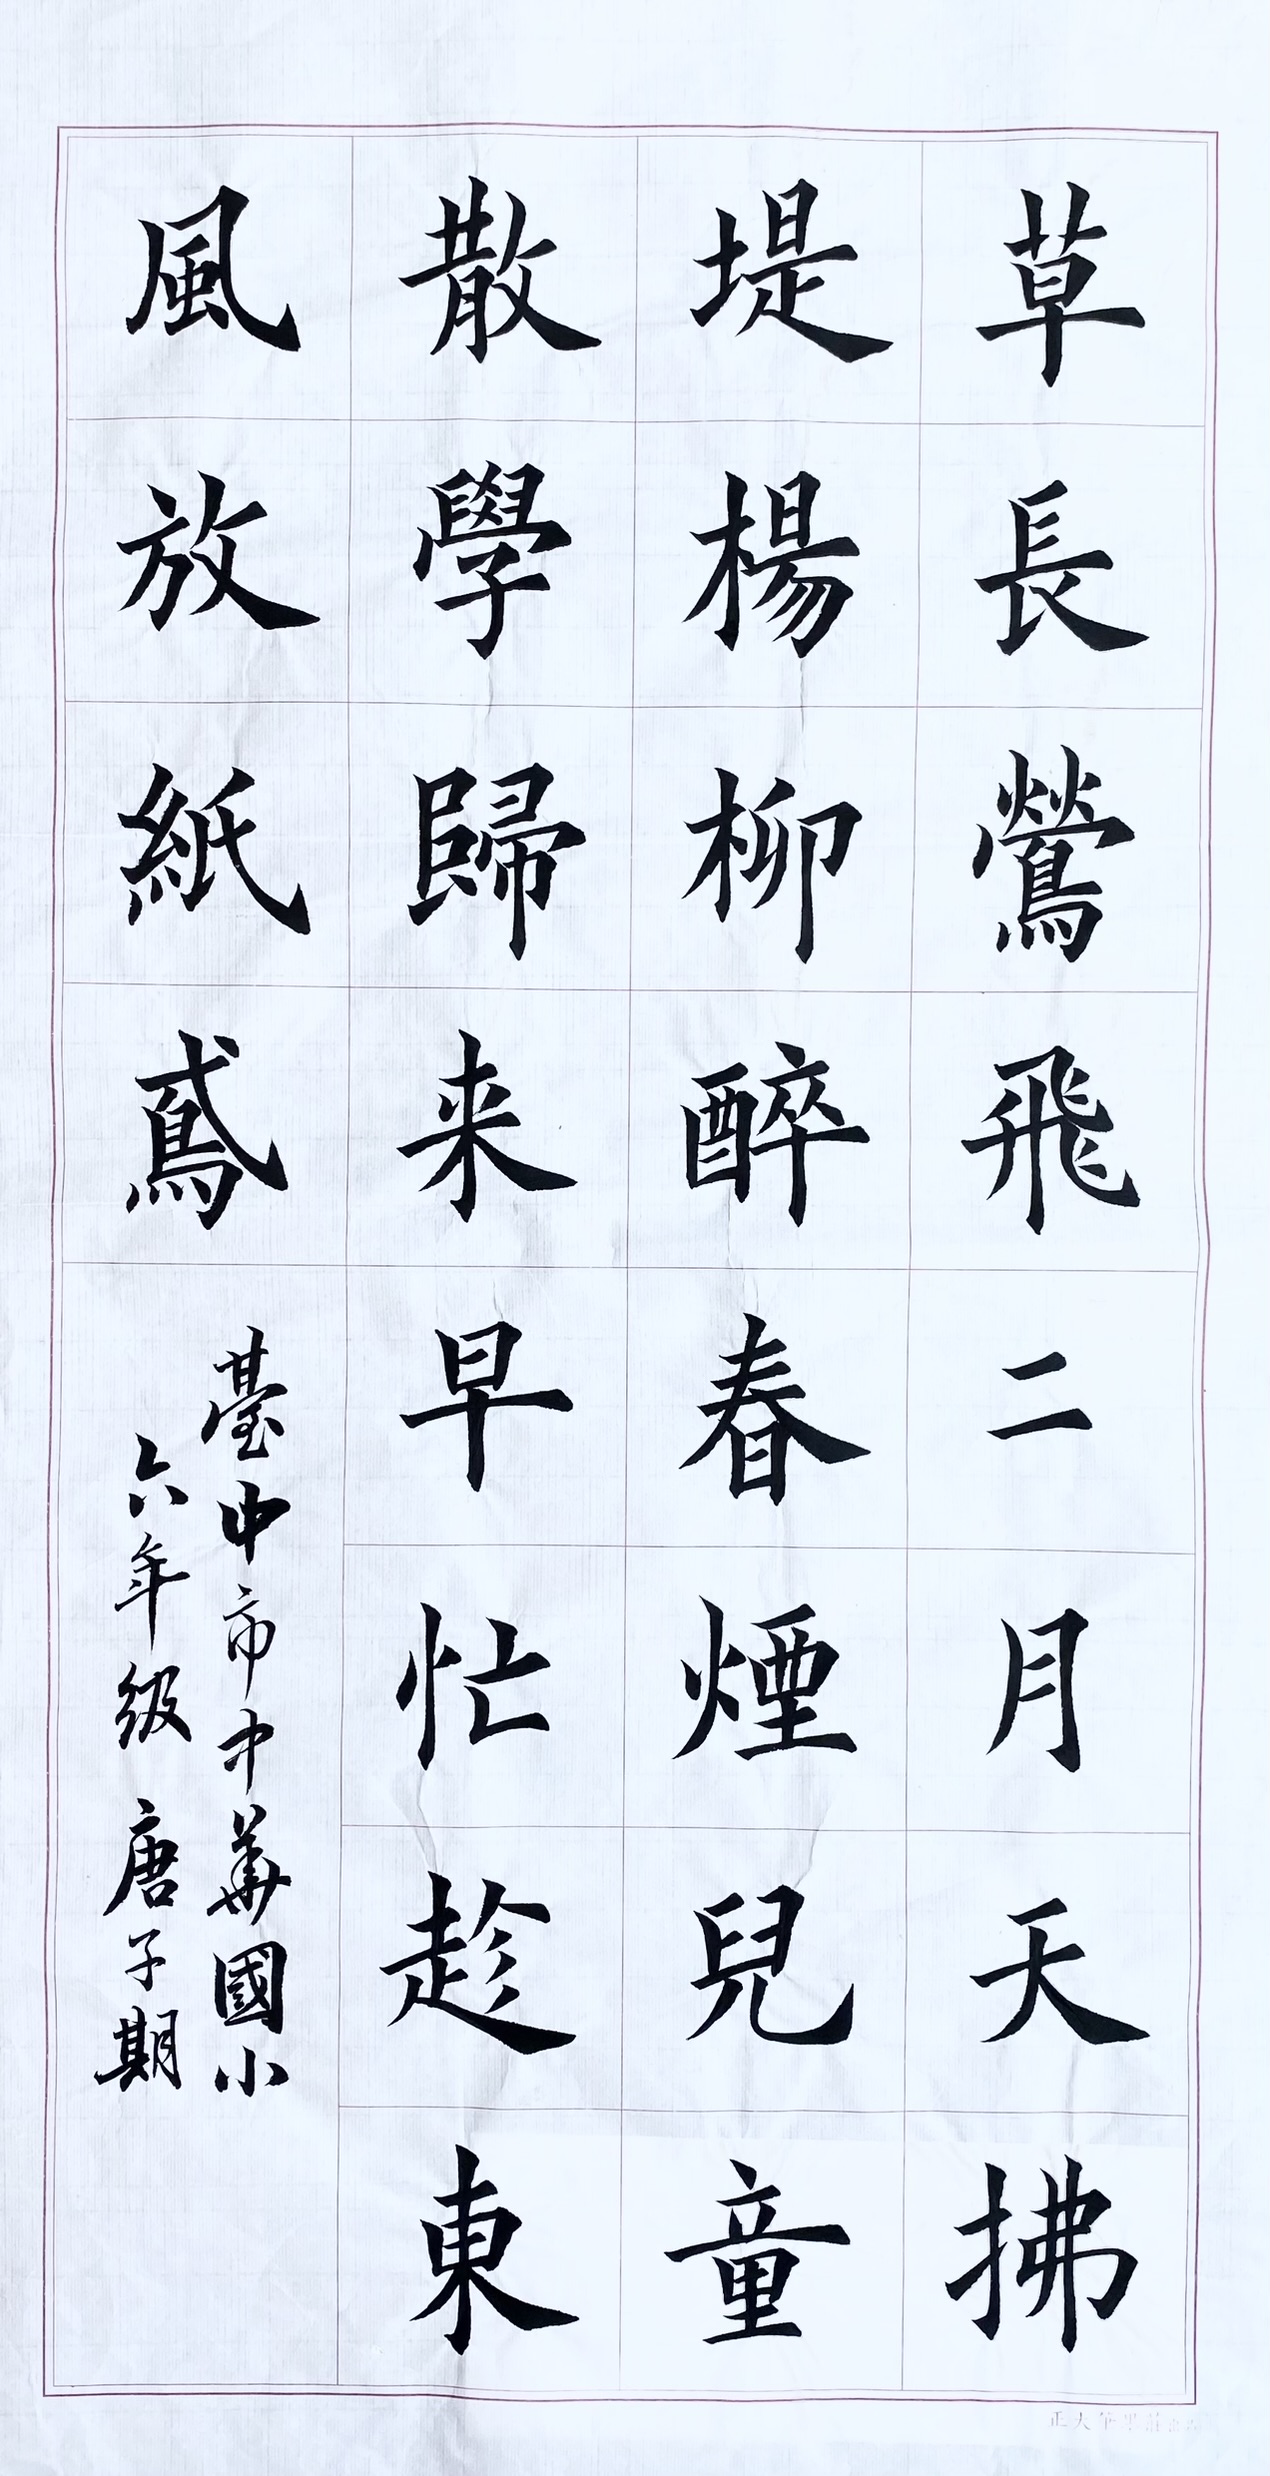 草長鶯飛二月天拂
堤楊柳醉春煙兒童
散學歸来早忙趁東
風放紙鳶
臺中市中華國小
六年級 唐子期